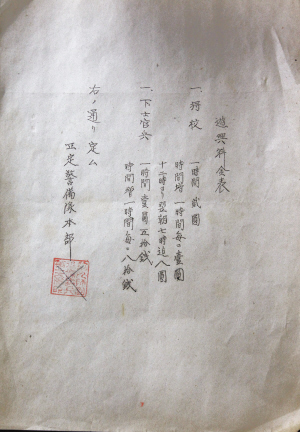 遊興料金表
一、将校 一時間 貮圓
時間増 一時間毎ニ壹圓
十二時ヨリ翌朝七時迠八圓
一、下士官兵 一時間 壹圓五拾銭
時間増 一時間毎ニ八拾銭
右ノ通リ定ム
正定警備隊本部